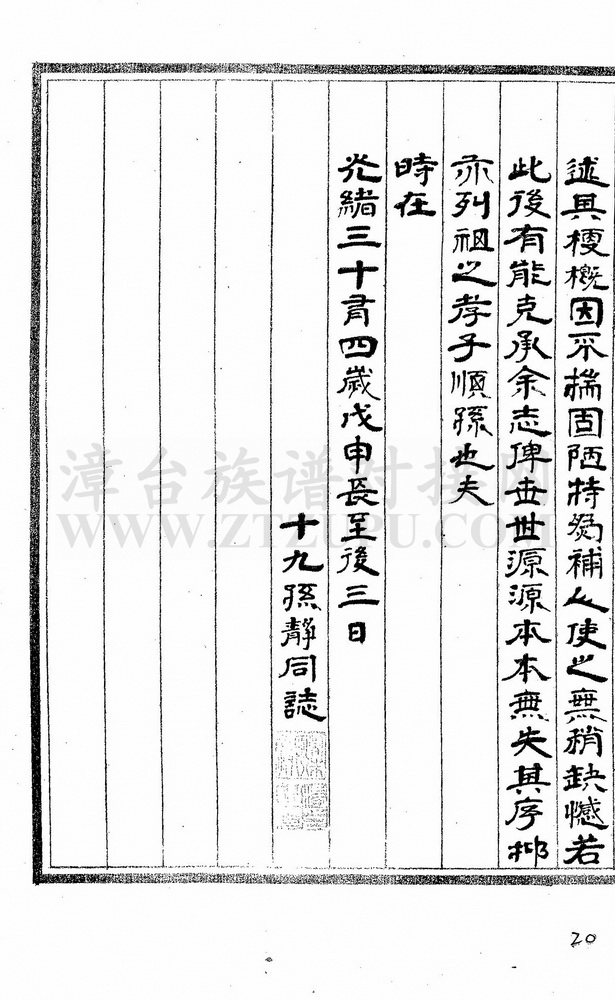 述其梗概因不揣固陋特為補入使之無稍缺憾若
此後有能克承余志俾世世源源本本無失其序抑
亦列祖之孝子順孫也夫
時在
光緒三十有四歲戊申長至後三日
十九孫靜同誌
漳台族谱对接网
WWW.ZTZUPU.COM
20